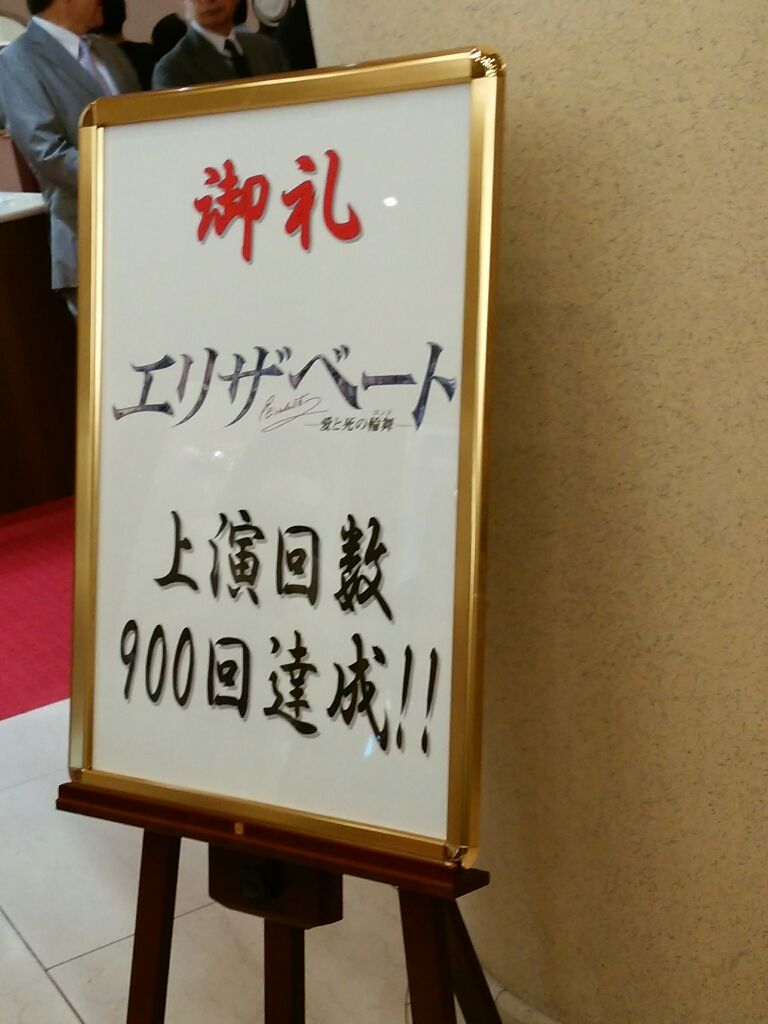 御礼
エリザベート
―愛と死の輪舞―
上演回数
900回達成!!